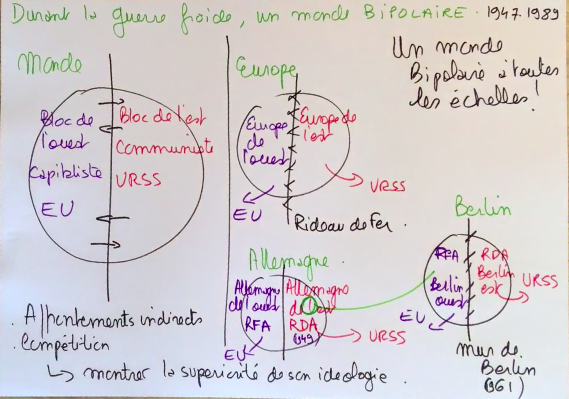 Durant la guerre froide, un monde BIPOLAIRE. 1947.1989
Un monde
Bipolaire à toutes
les échelles!
Monde
Bloc de
l'ouest
Capitaliste
EU
Bloc de l'est
Communiste
URSS
. Affrontements indirects
. Compétition
↳ montrer la supériorité de son idéologie.
Europe
Europe
de
l'ouest
Europe de
l'est
EU
URSS
Rideau de Fer.
Allemagne
Allemagne
de l'ouest
RFA
Allemagne
de l'est
RDA
(49)
EU
URSS
Berlin
RFA
Berlin
ouest
RDA
Berlin
est
EU
URSS
mur de
Berlin
(1961)